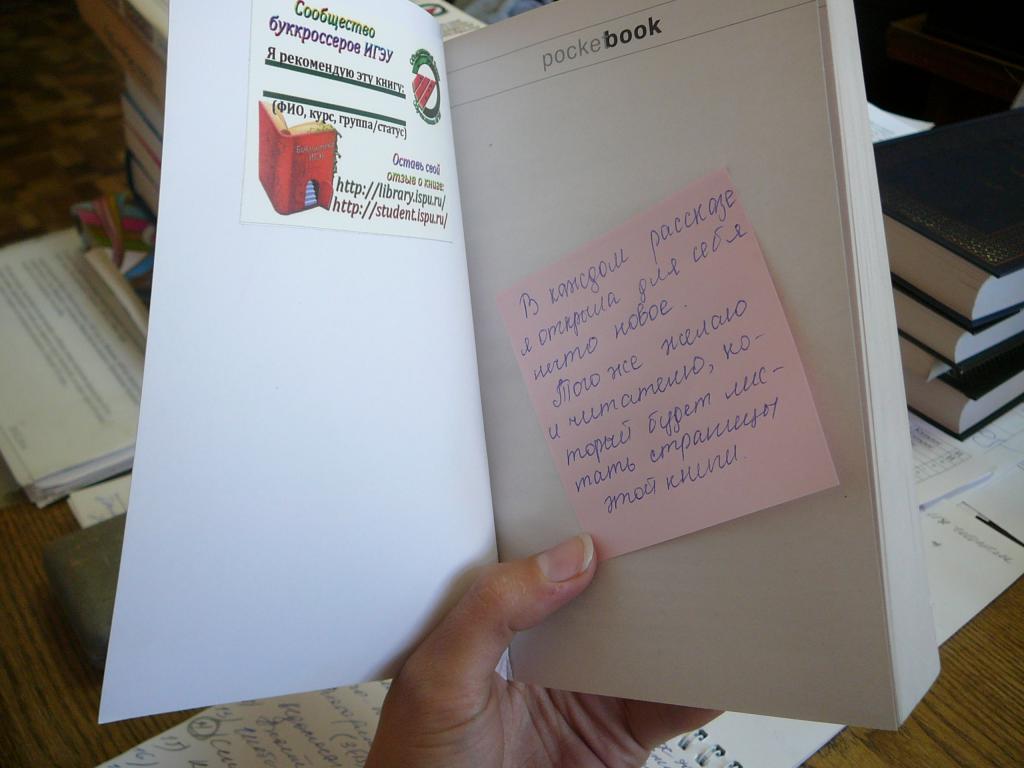 Сообщество
буккроссеров ИГЭУ
Я рекомендую эту книгу:
(ФИО, курс, группа/статус)
Библиотека
ИГЭУ
Оставь свой
отзыв о книге:
http://library.ispu.ru/
http://student.ispu.ru/
pocketbook
В каждом рассказе
я открыла для себя
нечто новое.
Того же желаю
и читателю, ко-
торый будет лис-
тать страницы
этой книги.